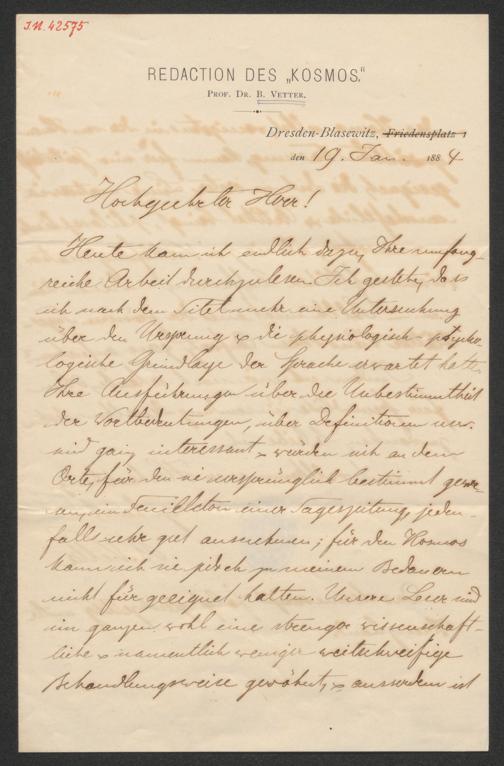 I.N. 42575
REDACTION DES „KOSMOS.“
PROF. DR. B. VETTER.
Dresden-Blasewitz, Friedensplatz 1
den 19. Jan. 1884
Hochgeehrter Herr!
Heute kam ich endlich dazu, Ihre umfang-
reiche Arbeit durchzulesen. Ich gestehe, dass
ich nach dem Titel mehr eine Untersuchung
über den Ursprung & die physiologisch-psycho-
logische Grundlage der Sprache erwartet hatte.
Ihre Ausführungen über die Unbestimmtheit
der Wortbedeutungen, über Definitionen usw.
sind ganz interessant & würden sich an dem
Orte, für den sie ursprünglich bestimmt gewe-
sen, im Feuilleton einer Tageszeitung, jeden-
falls sehr gut ausnehmen; für den Kosmos
kann ich sie jedoch zu meinem Bedauern
nicht für geeignet halten. Unsere Leser sind
im ganzen wohl eine strenger wissenschaft-
liche & namentlich weniger weitschweifige
Behandlungsweise gewöhnt, & ausserdem ist